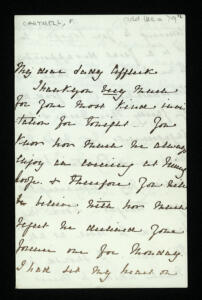 CARTMELL, F.
My dear Lady Affleck
Thank you very much
for your most kind invi
tation for tonight — You
know how much we always
enjoy an evening at Lodge
& therefore you will
be believe with how much
regret we declined your
former one for Monday.
I had set my heart on